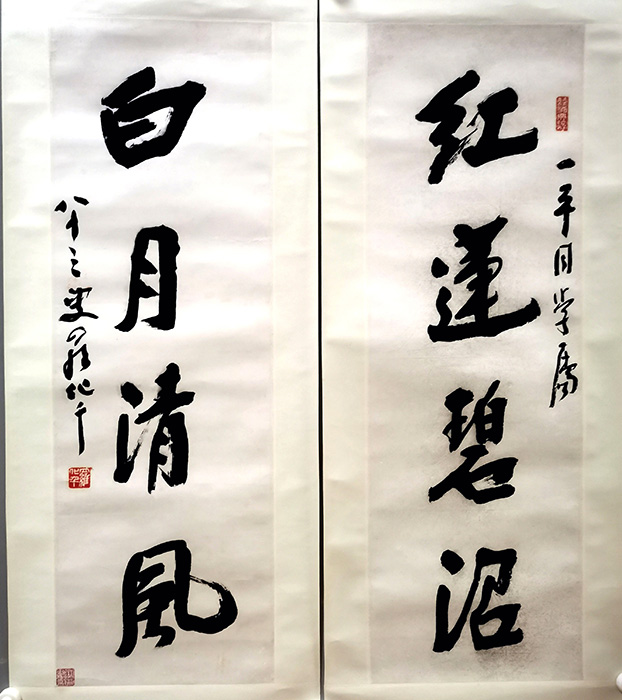 一平同学属
紅蓮碧沼
白月清風
八十三叟